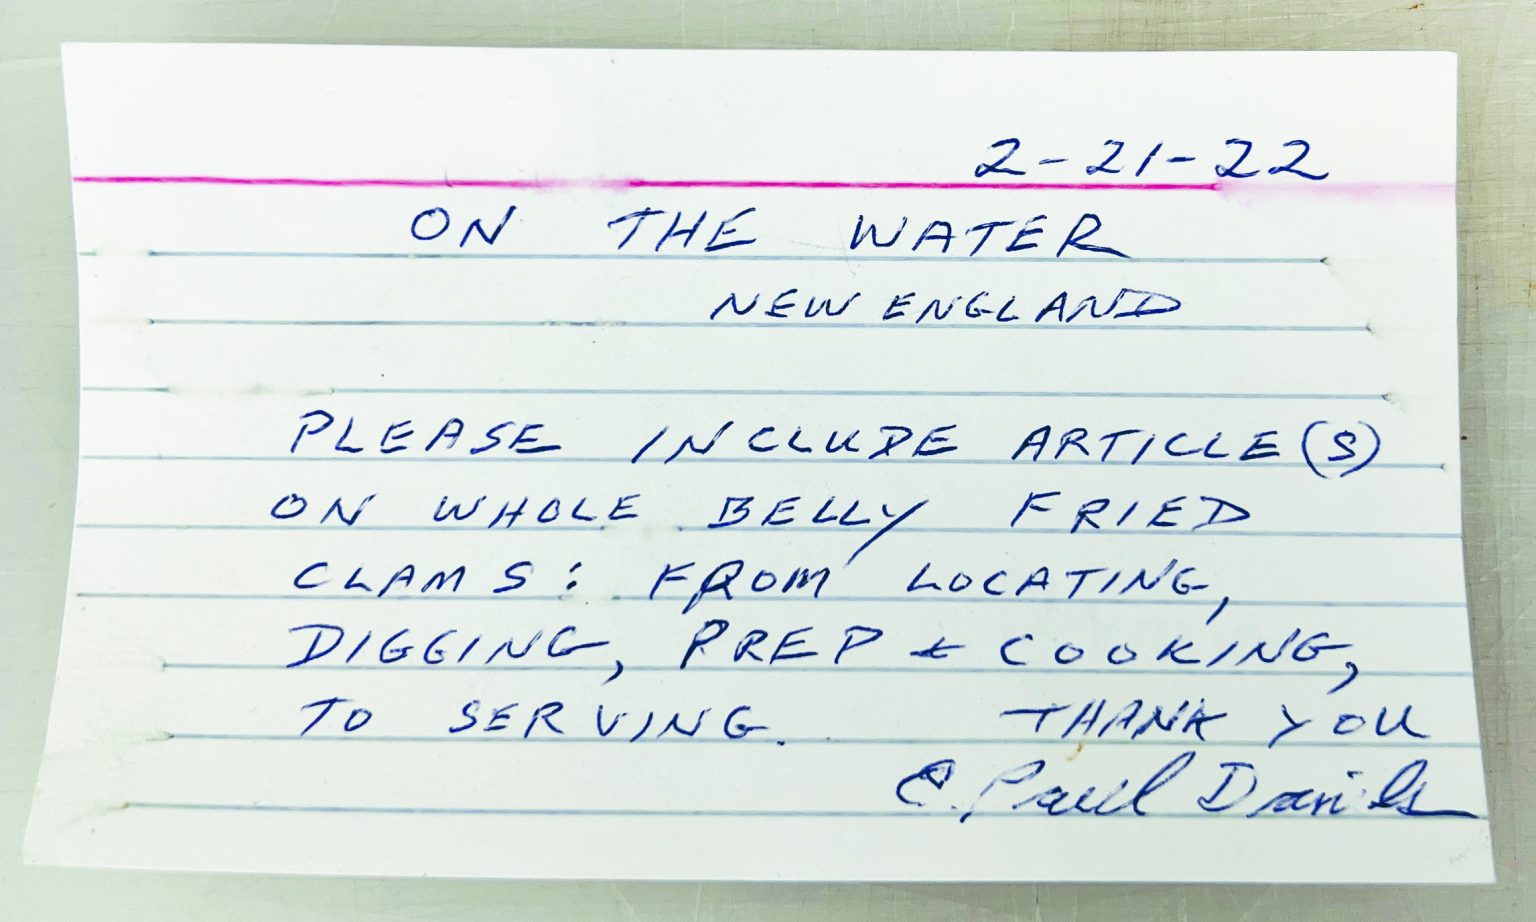 2-21-22
ON THE WATER
NEW ENGLAND
PLEASE INCLUDE ARTICLE(S)
ON WHOLE BELLY FRIED
CLAMS: FROM LOCATING,
DIGGING, PREP & COOKING,
TO SERVING. THANK YOU
E. Paul Daniels